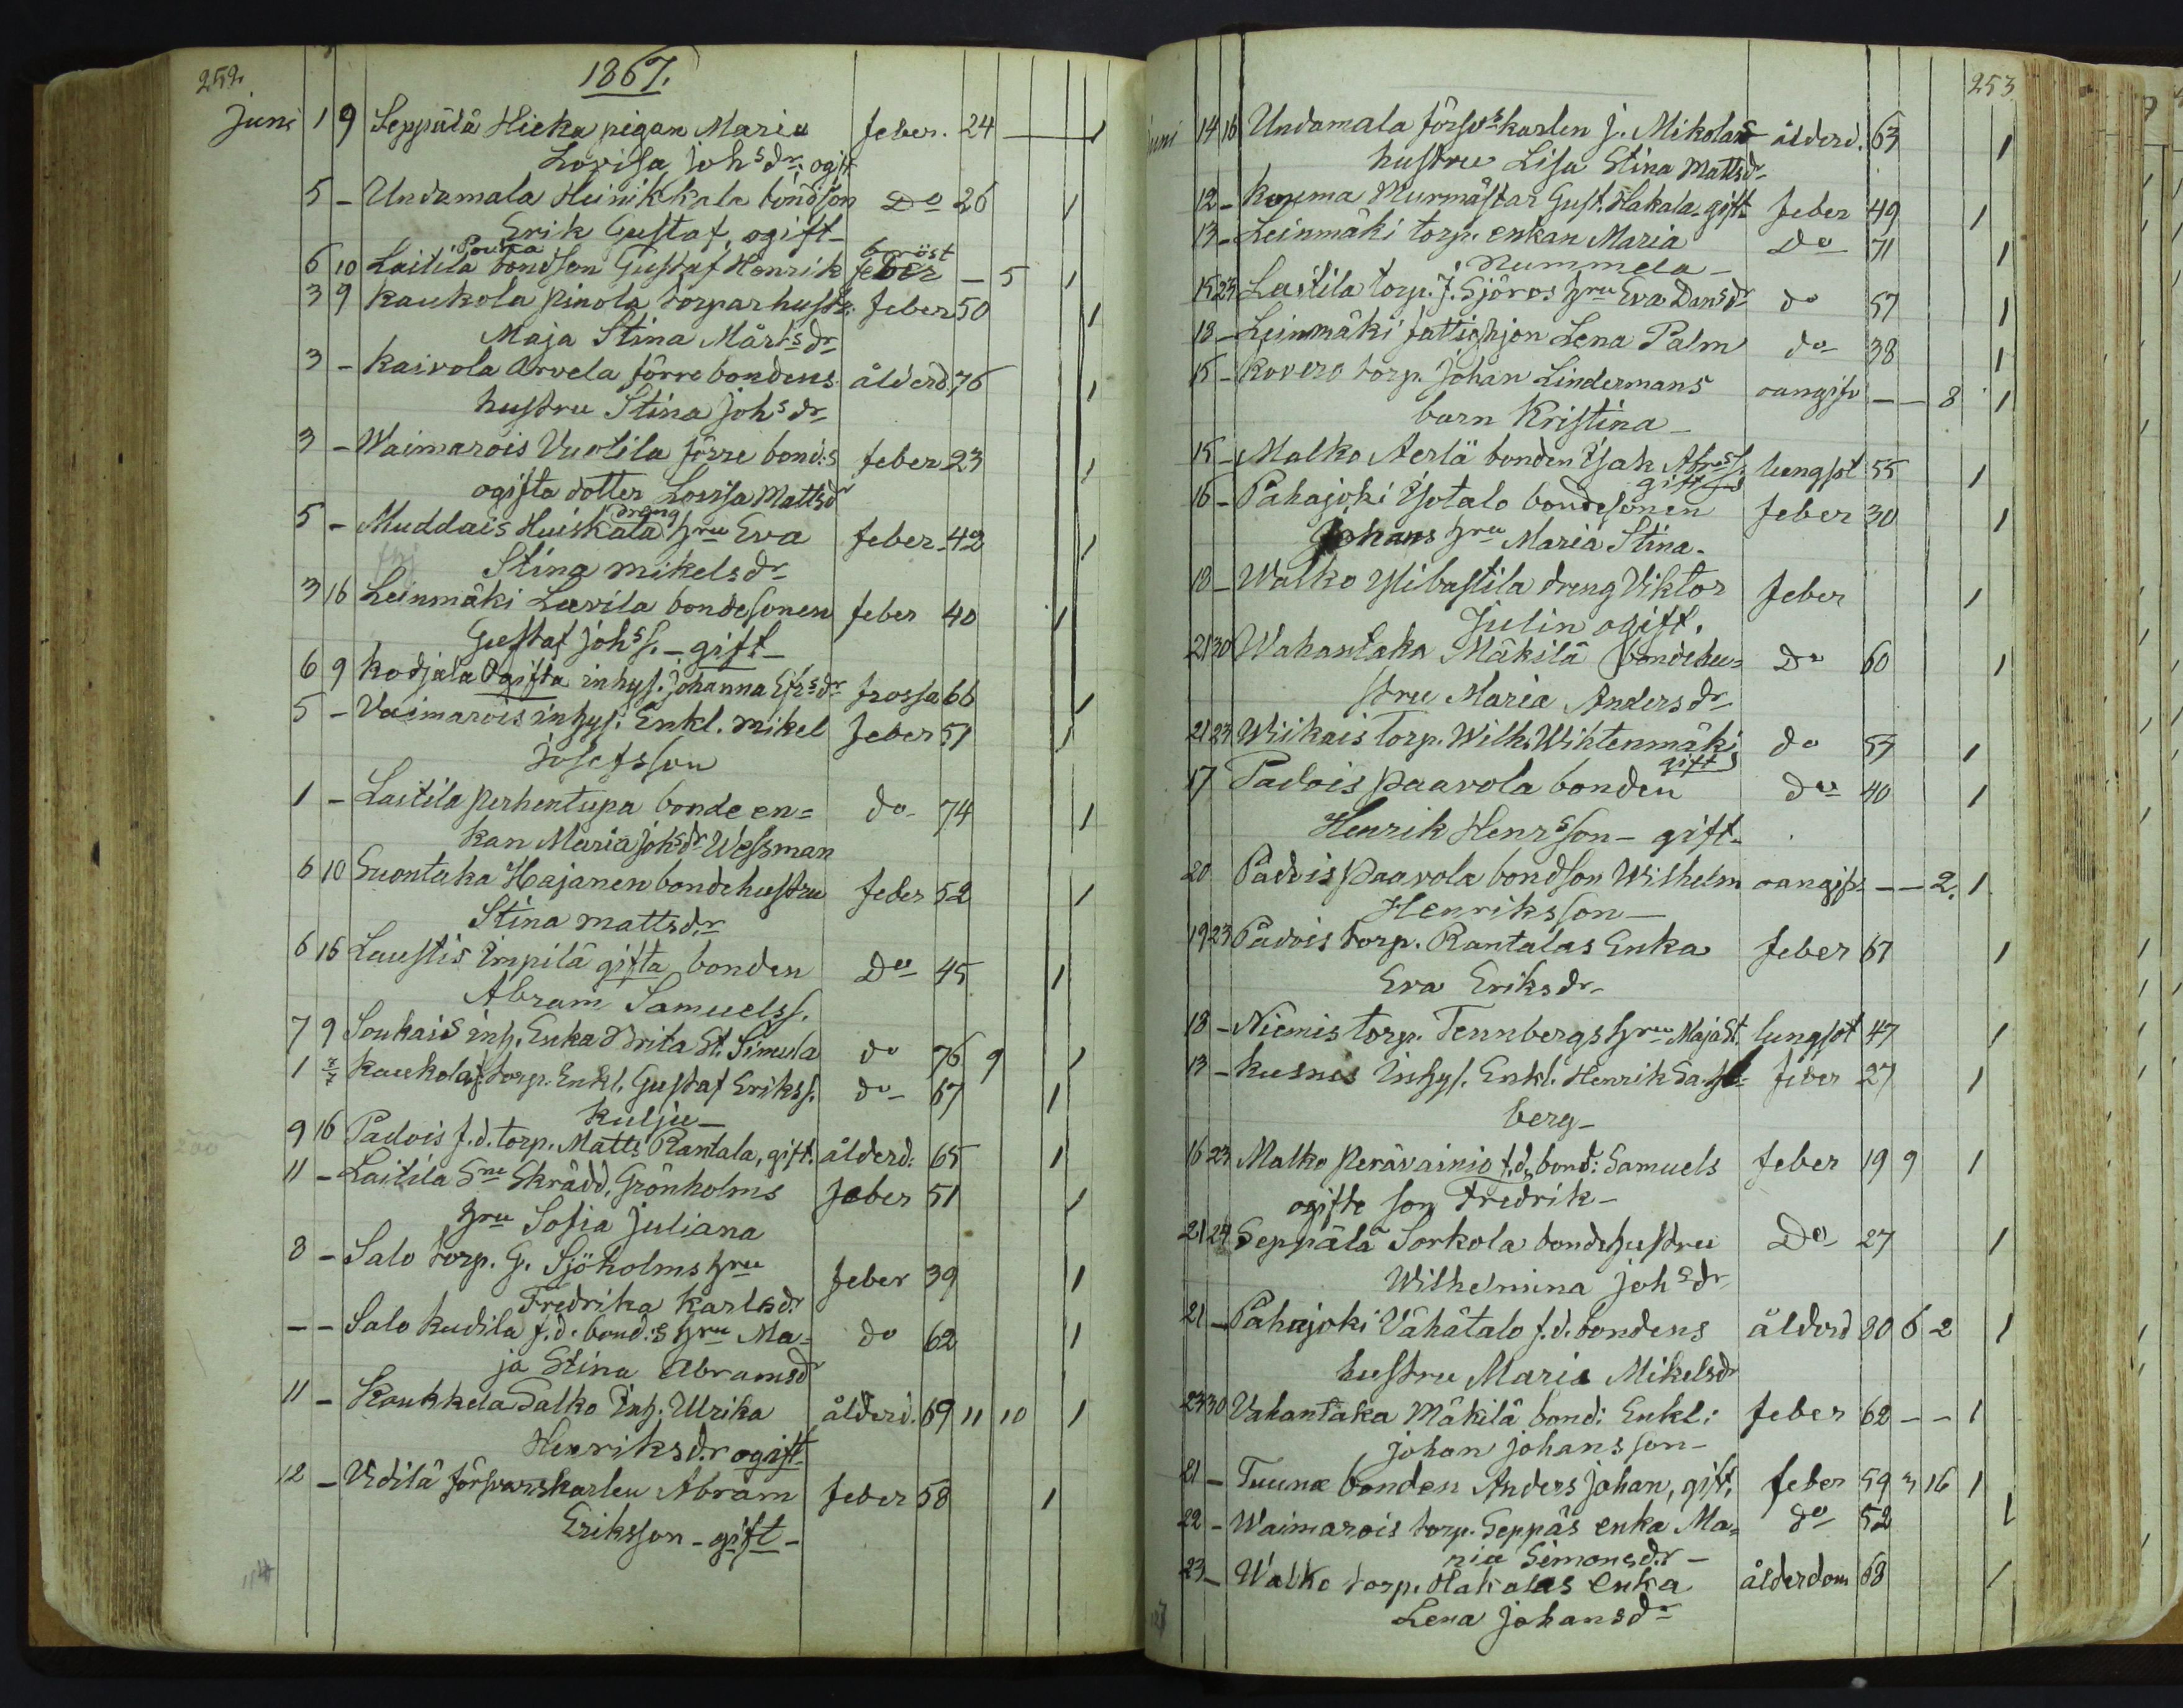 252.
1867.
Juni 1 9 Seppälä Hieka pigan Maria feber. 24 — 1
Lovisa Johsdr ogift
5 - Undamala Heinikkala bondson Do 26 1
Erik Gustaf, ogift -
Pouka bröst
6 10 Laitila bondson Gustaf Henrik feber - 5 1
3 9 Kaukola Pinola torparhustr. feber 50 1
Maja Stina Mårtsdr
3 - Kaivola Arvela förre bondens ålderd. 76 1
hustru Stina Johsdr
3 - Waimarois Vuotila förre bond:s feber 23 1
ogifta dotter Lovisa Mattsdr
dräng
5 - Muddais Huiskala hru Eva feber - 42 1
Stina Mikelsdr
3 16 Leinmäki Luvila bondesonen feber 40 1
Gustaf Johss. - gift -
6 9 Kodjala Ogifta inhys. Johanna Efrsdr frossa 66 1
5 - Vaimarois inhys. Enkl. Mikel feber 51 1
Josefsson
1 - Laitila Perhentupa bonde en= do - 74 1
kan Maria Johsdr Wessman
6 10 Suontaka Hajanen bondehustru feber 52 1
Stina Mattsdr
6 16 Laustis Impilä gifta bonden Do 45 1
Abram Samuelss.
7 9 Soukais inh. Enka Brita St. Simula do 76 9 1
1 7/7 Kaukola f. torp. Enkl. Gustaf Erikss. do - 67 1
Kulju -
9 16 Padois f.d. torp. Matts Rantala, gift. ålderd: 65 1
11 - Laitila Sne Skrädd. Grönholms feber 51 1
hru Sofia Juliana
8 - Salo torp. G. Sjöholms hru feber 39 1
Fredrika Karlsdr
- - Salo Kudila f.d. bond:s hru Ma= do 62 1
ja Stina Abramsdr
11 - Kaukkela Salko Inh. Ulrika ålderd. 69 11 10 1
Henriksdr ogift -
12 - Vidilä försvarskarlen Abram feber 58 1
Eriksson - gift -
114
253.
Juni 14 16 Undamala försvskarlen J. Mikolas ålderd. 63 1
hustru Lisa Stina Mattsdr
12 - Murmästar Gust. Hakala gift. feber 49 1
13 - Leinmäki torp. enkan Maria Do 71 1
Nummela -
15 23 Laitila torp. J. Sjöros hru Eva Dansdr do 57 1
13 - Leinmäki fattighjon Lena Palm do - 38 1
15 - Kovero torp. Johan Lindermans oangifv - - 8 1
barn Kristina -
15 - Malko Aerlä bonden Isak Abrss. lungsot 55 1
gift
16 - Pahajoki Ysotalo bondesonen feber 30 1
Johans hru Maria Stina.
18 - Walko Ylibastila dreng Viktor feber 1
Julin ogift.
21 30 Wahantaka Mäkilä bondehu= Do 60 1
stru Maria Andersdr
21 23 Wiikais Torp. Wilh. Wihtenmäki do 57 1
gift
17 Padois Paavola bonden do 40 1
Henrik Henrsson - gift -
20 Padois Paavola bondson Wilhelm oangifv - - 2. 1
Henriksson -
19 23 Padois torp. Rantalas Enka feber 67 1
Eva Eriksdr -
18 - Niemis torp. Tennbergs hru Maja St. lungsot 47 1
13 - Kusnis Inhys. Enkl. Henrik feber 27 1
berg -
16 23 Malko Perävainio f.d. bond: Samuels feber 19 9 1
ogifte son Fredrik -
21 24 Seppälä Sorkola bondehustru Do 27 1
Wilhelmina Johsdr
21 - Pahajoki Vähätalo f.d. bondens ålderd 80 6 2 1
hustru Maria Mikelsdr
23 30 Vahantaka Mäkilä bond: Enkl: feber 62 - - 1
Johan Johansson -
21 - Tuuna bonden Anders Johan, gift. feber 59 3 16 1
22 - Waimarois torp. Seppäs enka Ma= do 52 1
ria Simonsdr -
23 - Walko torp. Hakalas Enka ålderdom 68 1
Lena Johansdr
127